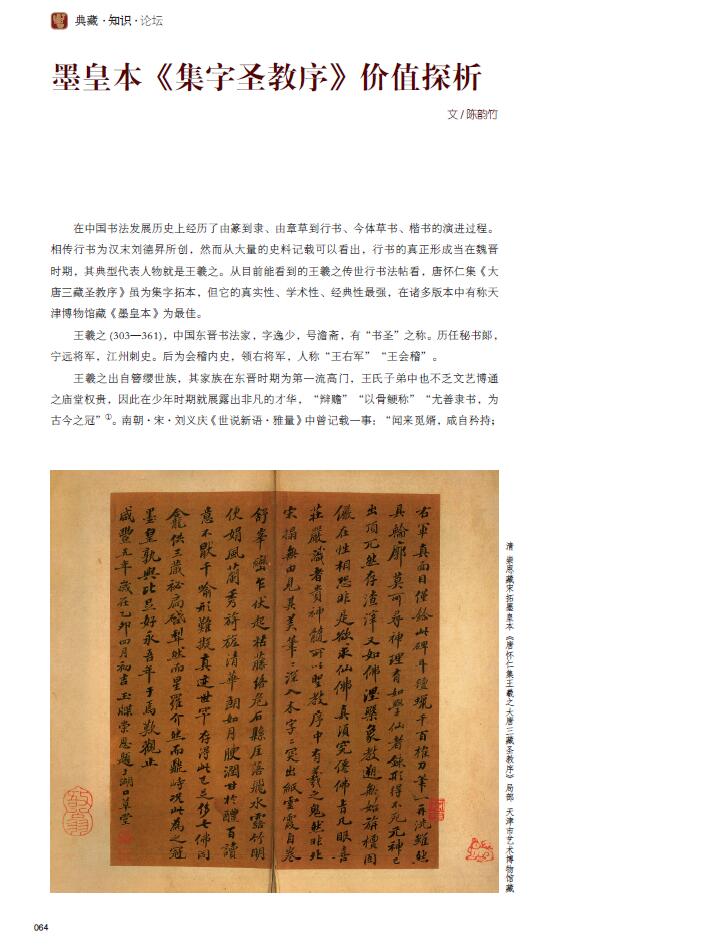 典藏·知识·论坛
墨皇本《集字圣教序》价值探析
文 / 陈韵竹
在中国书法发展历史上经历了由篆到隶、由章草到行书、今体草书、楷书的演进过程。
相传行书为汉末刘德昇所创，然而从大量的史料记载可以看出，行书的真正形成当在魏晋
时期，其典型代表人物就是王羲之。从目前能看到的王羲之传世行书法帖看，唐怀仁集《大
唐三藏圣教序》虽为集字拓本，但它的真实性、学术性、经典性最强，在诸多版本中有称天
津博物馆藏《墨皇本》为最佳。
王羲之 (303—361)，中国东晋书法家，字逸少，号澹斋，有“书圣”之称。历任秘书郎，
宁远将军，江州刺史。后为会稽内史，领右将军，人称“王右军”“王会稽”。
王羲之出自簪缨世族，其家族在东晋时期为第一流高门，王氏子弟中也不乏文艺博通
之庙堂权贵，因此在少年时期就展露出非凡的才华，“辩赡”“以骨鲠称”“尤善隶书，为
古今之冠”①。南朝·宋·刘义庆《世说新语·雅量》中曾记载一事：“闻来觅婿，咸自矜持；
右軍真面目僅餘此碑年
具輪廓莫可尋神理有如學仙者鍊形得不死元神已
出頂兀然存渣滓又如佛涅槃象教
儼在性相怨非是欲求仙佛真須究僊佛旨凡眼喜
莊嚴識者貴神髓可以聖教序中有羲之鬼然非北
宋搨無由見其美筆筆深入木字字突出紙雲霞自卷
舒峯巒乍伏起枯藤絡危石縣厓落飛水露竹明
便娟風蘭秀旖旎清華朗如月腴潤甘於醴百讀
意不厭千喻形難擬真迹世罕存得此已足
龕供三歲祕
墨皇孰與比吴好永吾年于焉歎觀止
咸豐元年歲在乙卯四月初吉玉牒崇恩題
清 崇恩藏宋拓墨皇本《唐怀仁集王羲之大唐三藏圣教序》局部 天津市艺术博物馆藏
064